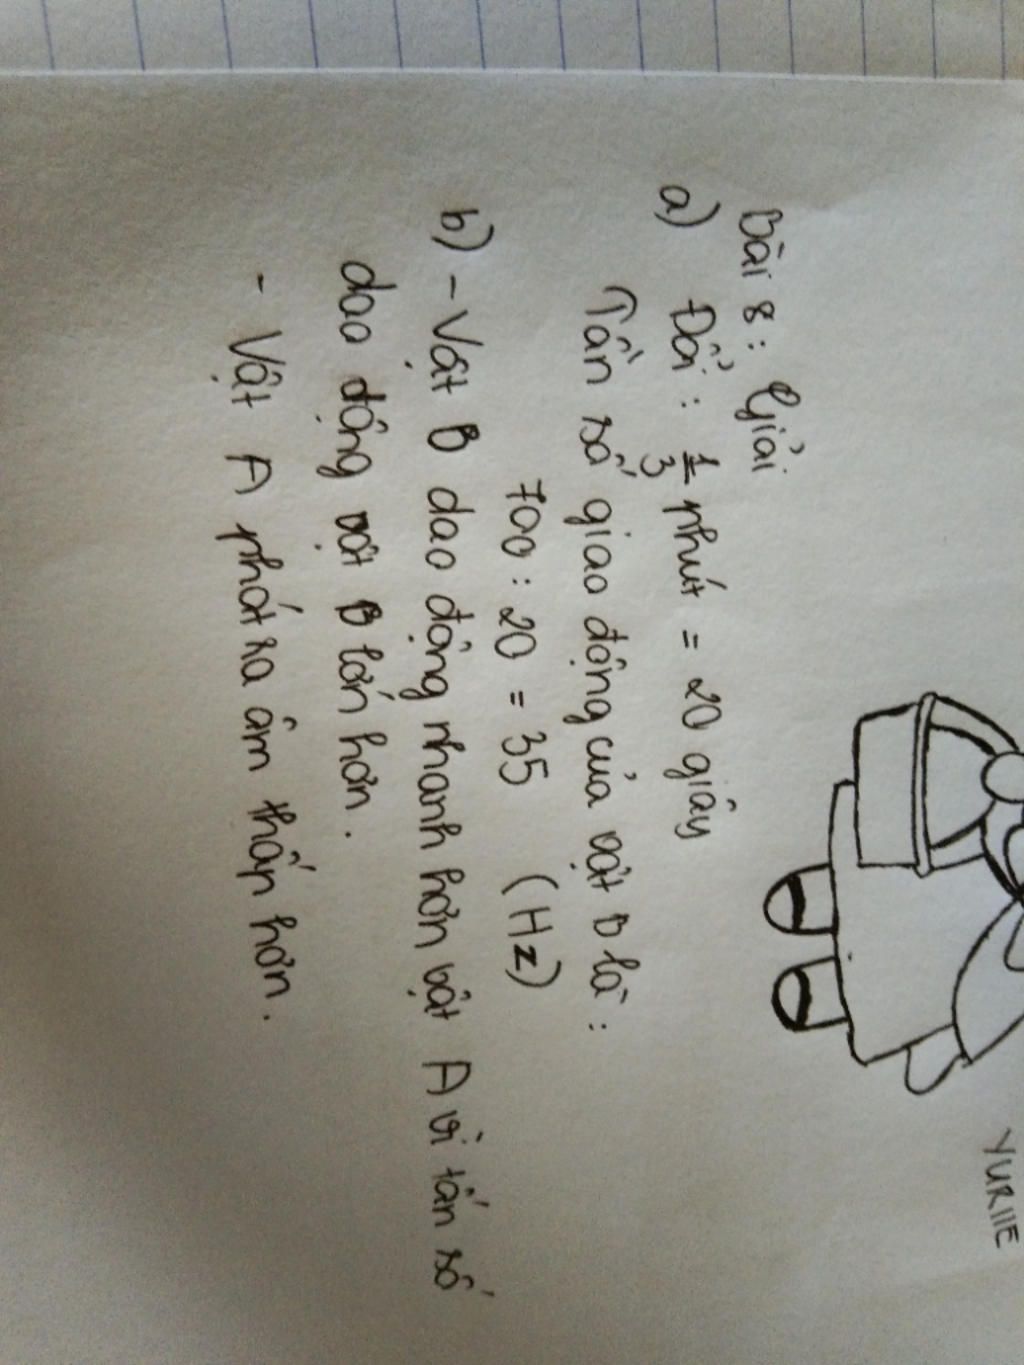 Bài 8: Giải
a) Đổi: 1/3 phút = 20 giây
Tần số giao động của vật B là:
700 : 20 = 35 (Hz)
b) - Vật B dao động nhanh hơn vật A vì tần số
dao động vật B lớn hơn.
- Vật A phát ra âm thấp hơn.
YURIIE